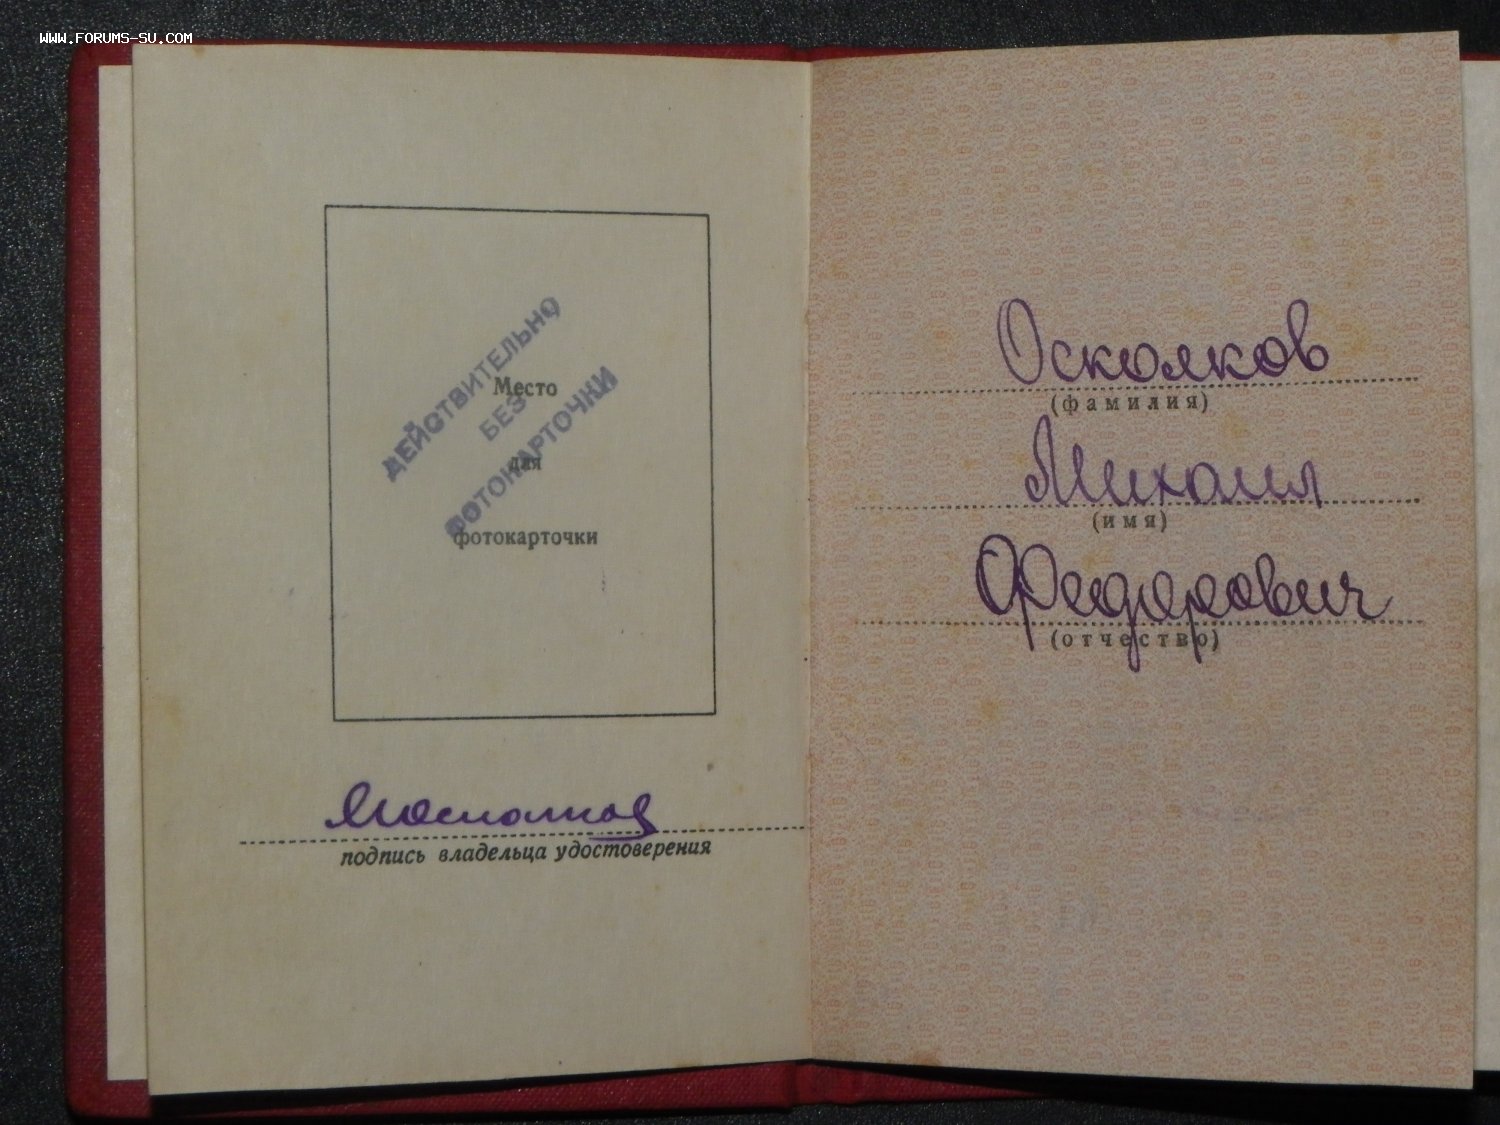 WWW.FORUMS-SU.COM
ДЕЙСТВИТЕЛЬНО
БЕЗ
ФОТОКАРТОЧКИ
Место
для
фотокарточки
МОсколков
подпись владельца удостоверения
Осколков
(фамилия)
Михаил
(имя)
Федорович
(отчество)